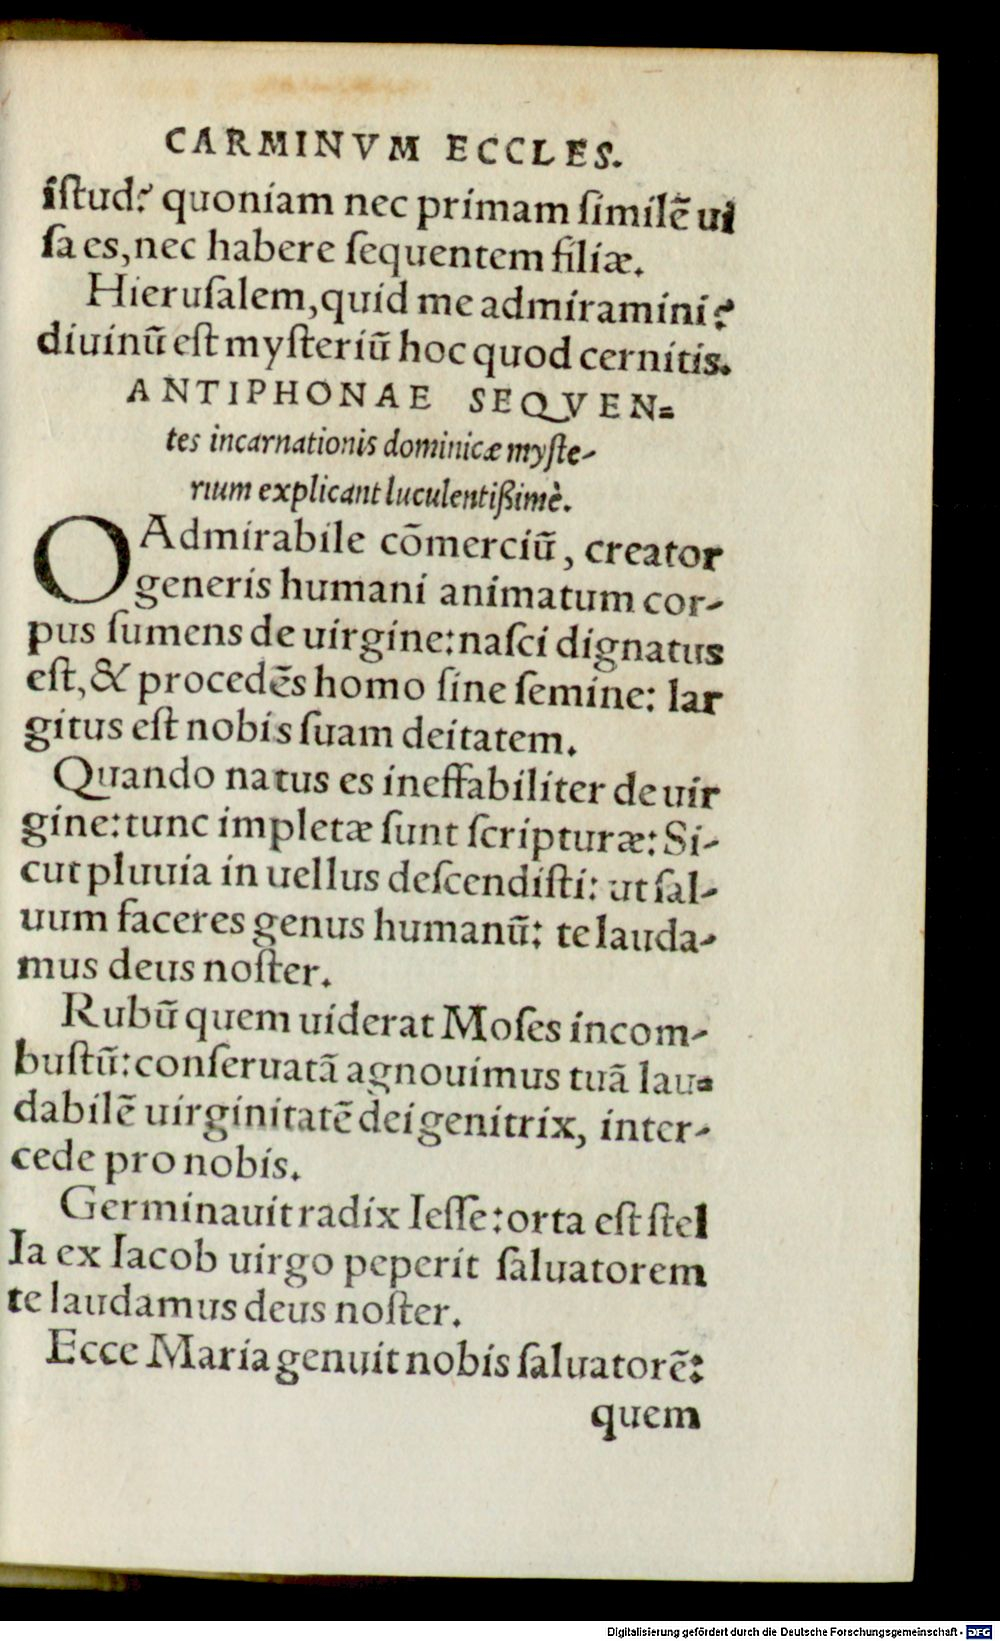 CARMINVM ECCLES.
iſtud? quoniam nec primam ſimilē ui
ſa es, nec habere ſequentem filiæ.
Hieruſalem, quid me admiramini?
diuinū eſt myſteriū hoc quod cernitis.
ANTIPHONAE SEQVEN=
tes incarnationis dominicæ myſte-
rium explicant luculentißimè.
O Admirabile cōmerciū, creator
generis humani animatum cor-
pus ſumens de uirgine: naſci dignatus
eſt, & procedēs homo ſine ſemine: lar
gitus eſt nobis ſuam deitatem.
Quando natus es ineffabiliter de uir
gine: tunc impletæ ſunt ſcripturæ: Si-
cut pluuia in uellus deſcendiſti: ut ſal-
uum faceres genus humanū: te lauda-
mus deus noſter.
Rubū quem uiderat Moſes incom-
buſtū: conſeruatā agnouimus tuā lau=
dabilē uirginitatē dei genitrix, inter-
cede pro nobis.
Germinauit radix Ieſſe: orta eſt ſtel
la ex Iacob uirgo peperit ſaluatorem
te laudamus deus noſter.
Ecce Maria genuit nobis ſaluatorē:
quem
Digitalisierung gefördert durch die Deutsche Forschungsgemeinschaft - DFG